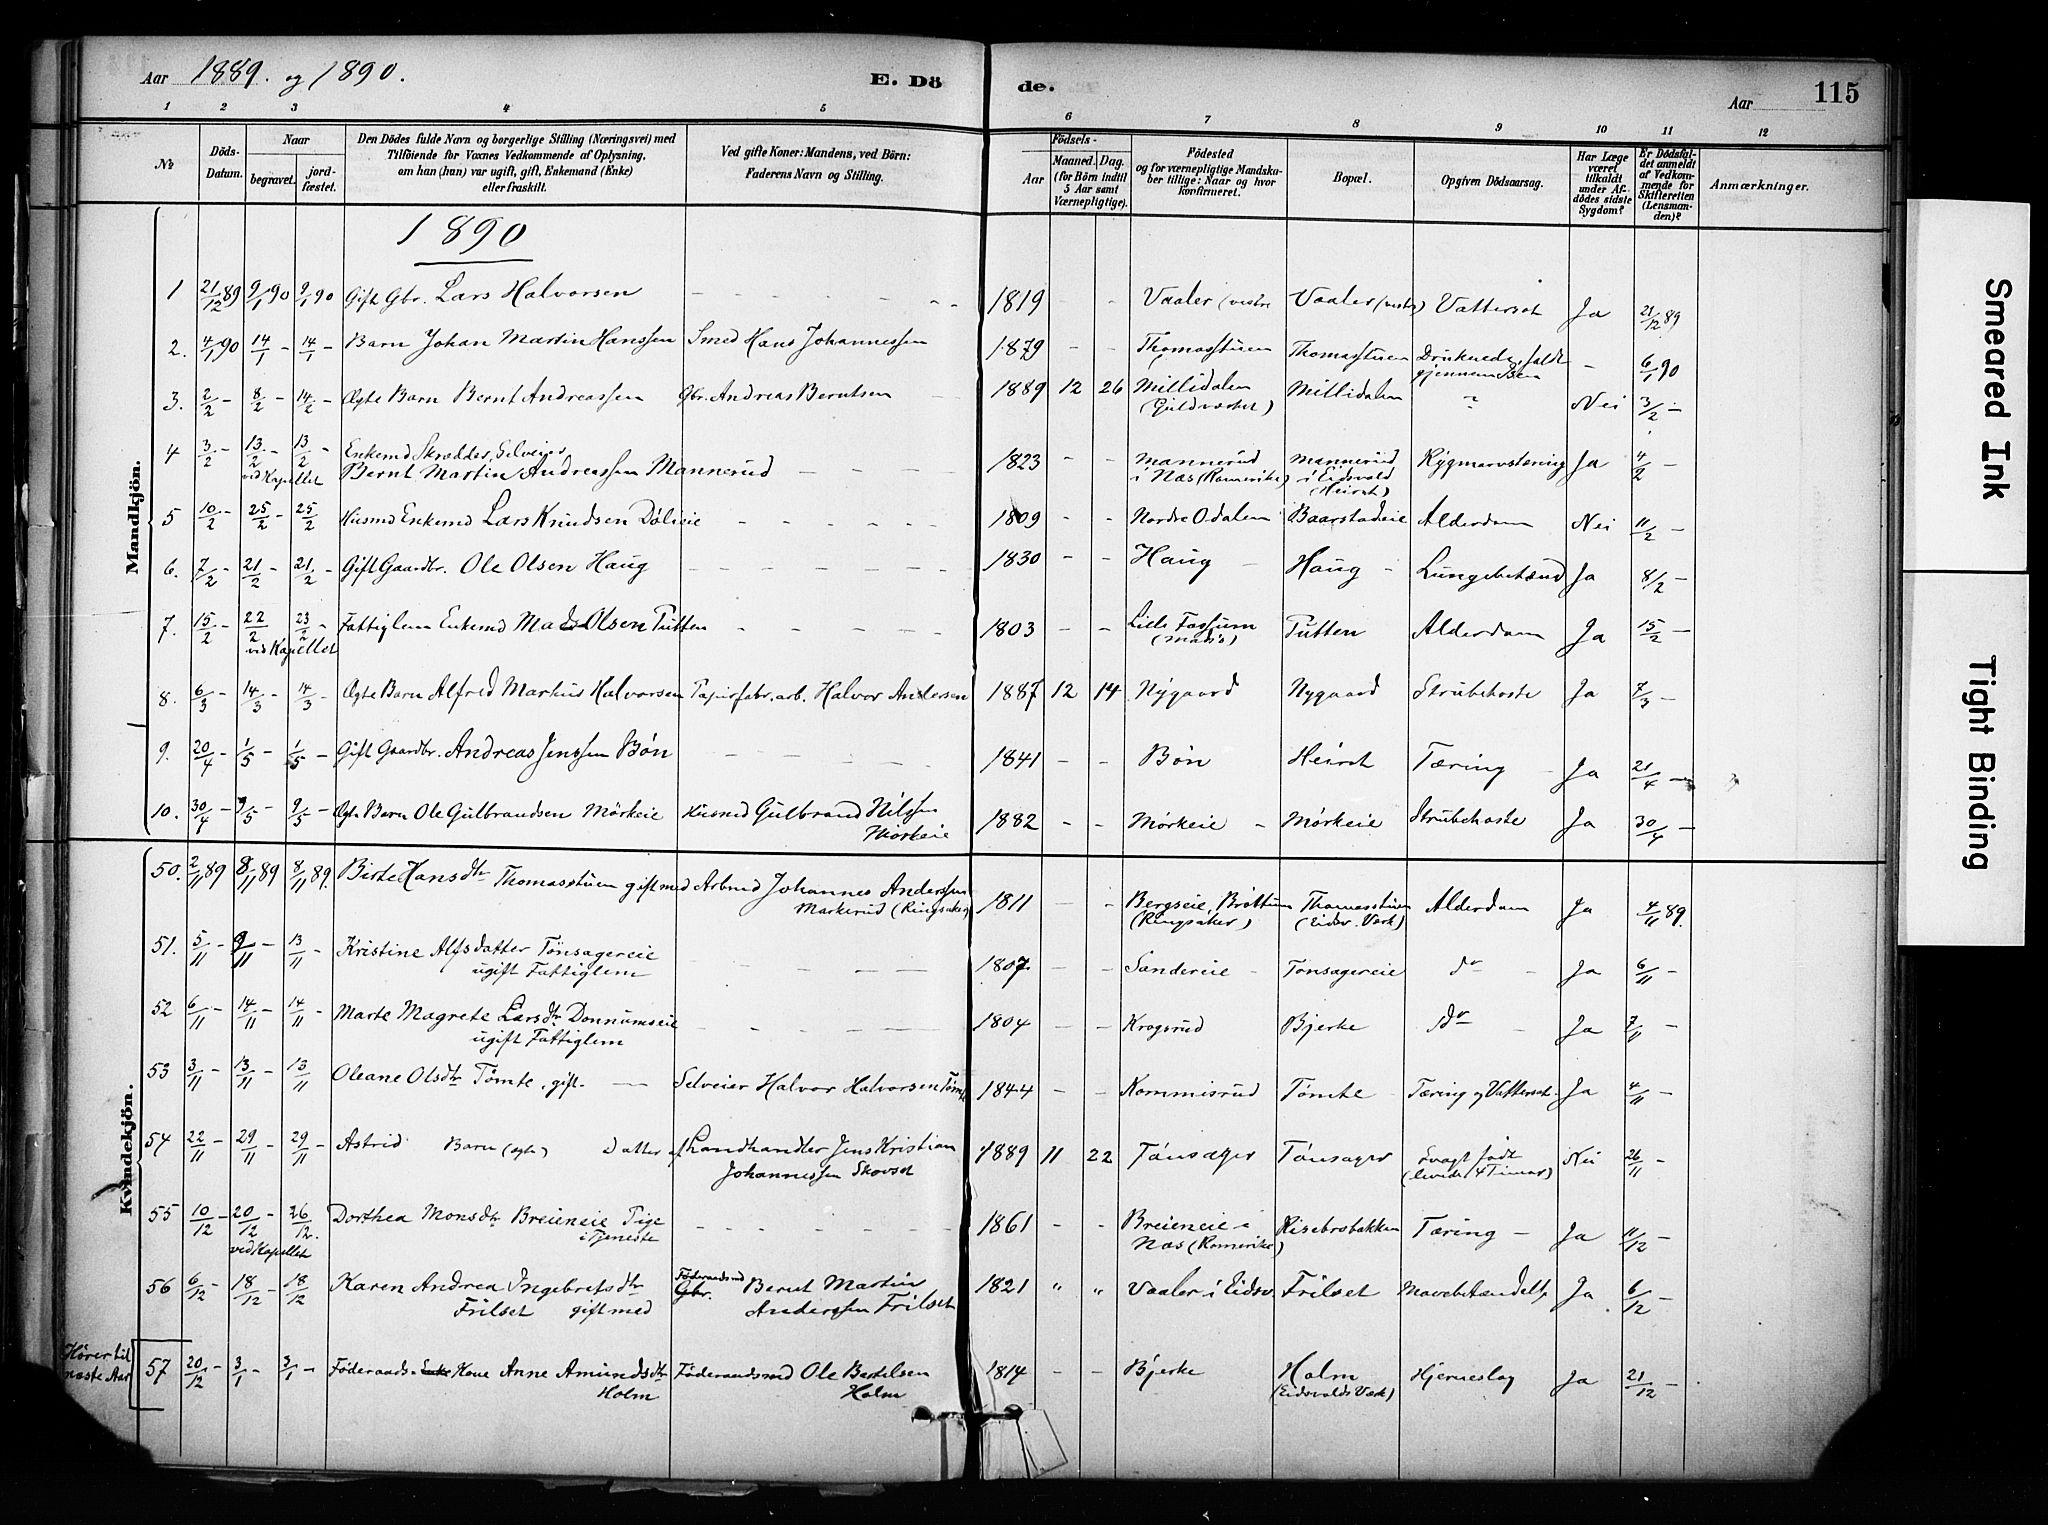 Aar 1889. og 1890.
E. Dö
de.
Aar
115
1 2 3 4 5 6 7 8 9 10 11 12
No
Döds-Datum.
Naar
begravet.
jordfæstet.
Den Dödes fulde Navn og borgerlige Stilling (Næringsvei) med
Tilföiende for Voxnes Vedkommende af Oplysning,
om han (hun) var ugift, gift, Enkemand (Enke)
eller fraskilt.
Ved gifte Koner: Mandens, ved Börn:
Faderens Navn og Stilling.
Födsels-
Aar
Maaned. Dag.
(for Börn indtil
5 Aar samt
Værnepligtige).
Födested
og for værnepligtige Mandskaber tillige: Naar og hvor
konfirmeret.
Bopæl.
Opgiven Dödsaarsag.
Har Læge
været
tilkaldt
under Afdödes sidste
Sygdom?
Er Dödsfaldet anmeldt
af Vedkommende for
Skifteretten
(Lensmanden)?
Anmærkninger.
Mandkjön.
1890
1 21/12 89 9/1 90 9/1 90 Gift Gbr. Lars Halvorsen - - - 1819 - - Vaaler (vestre) Vaaler (vestre) Vattersot Ja 21/12 89
2. 4/1 90 14/1 - 14/1 - Barn Johan Martin Hanssen Smed Hans Johannessen 1879 - - Thomasstuen Thomasstuen Druknede, faldt
gjennem Isen - 6/1 90
3. 2/2 - 8/2 - 14/2 - Ægte Barn Bernt Andreassen Gbr. Andreas Berntsen 1889 12 26 Millidalen
(Guldværket) Millidalen ? Nei 3/2 -
4 3/2 - 13/2 - 13/2 - Enkemd Skrædder, Selveier
ved Kapellet Bernt Martin Andreassen Mannerud - - - 1823 - - Mannerud
i Næs (Romerike) Mannerud
i Eidsvold
(Heirst) Rygmarvstæring Ja 4/2 -
5 10/2 - 25/2 - 25/2 Husmd Enkemd Lars Knudsen Dölieie - - - 1809 - - Nordre Odalen Baarstadeie Alderdom Nei 11/2 -
6. 7/2 - 21/2 - 21/2 - Gift Gaardbr. Ole Olsen Haug - - - 1830 - - Haug - Haug - Lungebetænd Ja 8/2 -
7. 15/2 - 22/2 23/2 - Fattiglem Enkemd Mads Olsen Putten - - - 1803 - - Lille Fossum Putten Alderdom Ja 15/2 -
ved Kapellet
8. 6/3 - 14/3 - 14/3 - Ægte Barn Alfred Markus Halvorsen Papirfabr. arb. Halvor Andersen 1887 12 14 Nygaard Nygaard Strubehoste Ja 7/3 -
9. 20/4 - 1/5 - 1/5 - Gift Gaardbr. Andreas Jenssen Bön - - - 1841 - - Bön Heirst Tæring - Ja 21/4 -
10. 30/4 - 9/5 - 9/5 - Ægte Barn Ole Gulbrandsen Mörkeie Husmd Gulbrand Nilssen
Mörkeie 1882 - - Mörkeie - Mörkeie Strubehoste Ja 30/4 -
Kvindekjön.
50. 2/11 89 8/11 89 8/11 89. Birte Hansdtr Thomasstuen gift med Arbmd Johannes Anderssen
Markerud (Ringsaker) 1811 - - Bergseie, Bröttum
(Ringsaker) Thomasstuen
(Eidsv. Værk) Alderdom Ja 4/11 89.
51. 5/11 - 9/11 - 13/11 - Kristine Alfsdatter Tönsagereie
ugift Fattiglem - - - 1807. - - Sandereie - Tönsagereie do - Ja 6/11 -
52 6/11 - 14/11 - 14/11 - Marte Magrete Larsdtr Donnumseie
ugift Fattiglem - - - 1804 - - Krogsrud Bjerke do - Ja 7/11 -
53 3/11 - 13/11 - 13/11 Oleane Olsdtr Tömte, gift - Selveier Halvor Halvorsen Tömte 1844 - - Kommisrud Tömte - Tæring og Vattersot. Ja 4/11 -
54 22/11 - 29/11 - 29/11 - Astrid Barn (ægte) Datter af Landhandler Jens Kristian
Johannessen Skovset 1889 11 22 Tönsager Tönsager Svagt født
(levede 4 Timer) Nei 26/11 -
55 10/12 - 20/12 - 26/12. Dorthea Monsdtr Breieneie Pige
i Tjeneste - - - 1861 - - Breieneie i
Næs (Romerike) Risebrobakken Tæring - Ja 11/12 -
ved Kapellet
56 6/12 - 18/12 - 18/12 Karen Andrea Ingebretsdtr
Frilset gift med Föderaadsmd
Gbr. Bernt Martin
Anderssen Frilset 1821 " " Vaaler i Eidsv Frilset Mavebetændelse Ja 6/12 -
Hörer til
næste Aar
57 20/12 - 3/1 - 3/1 - Föderaads- Enke Kone Anne Amundsdtr
Holm Föderaadsmd Ole Bertelsen
Holm 1814 - - Bjerke Holm
(Eidsvolds Værk) Hjerneslag Ja 21/12 -
Smeared Ink
Tight Binding